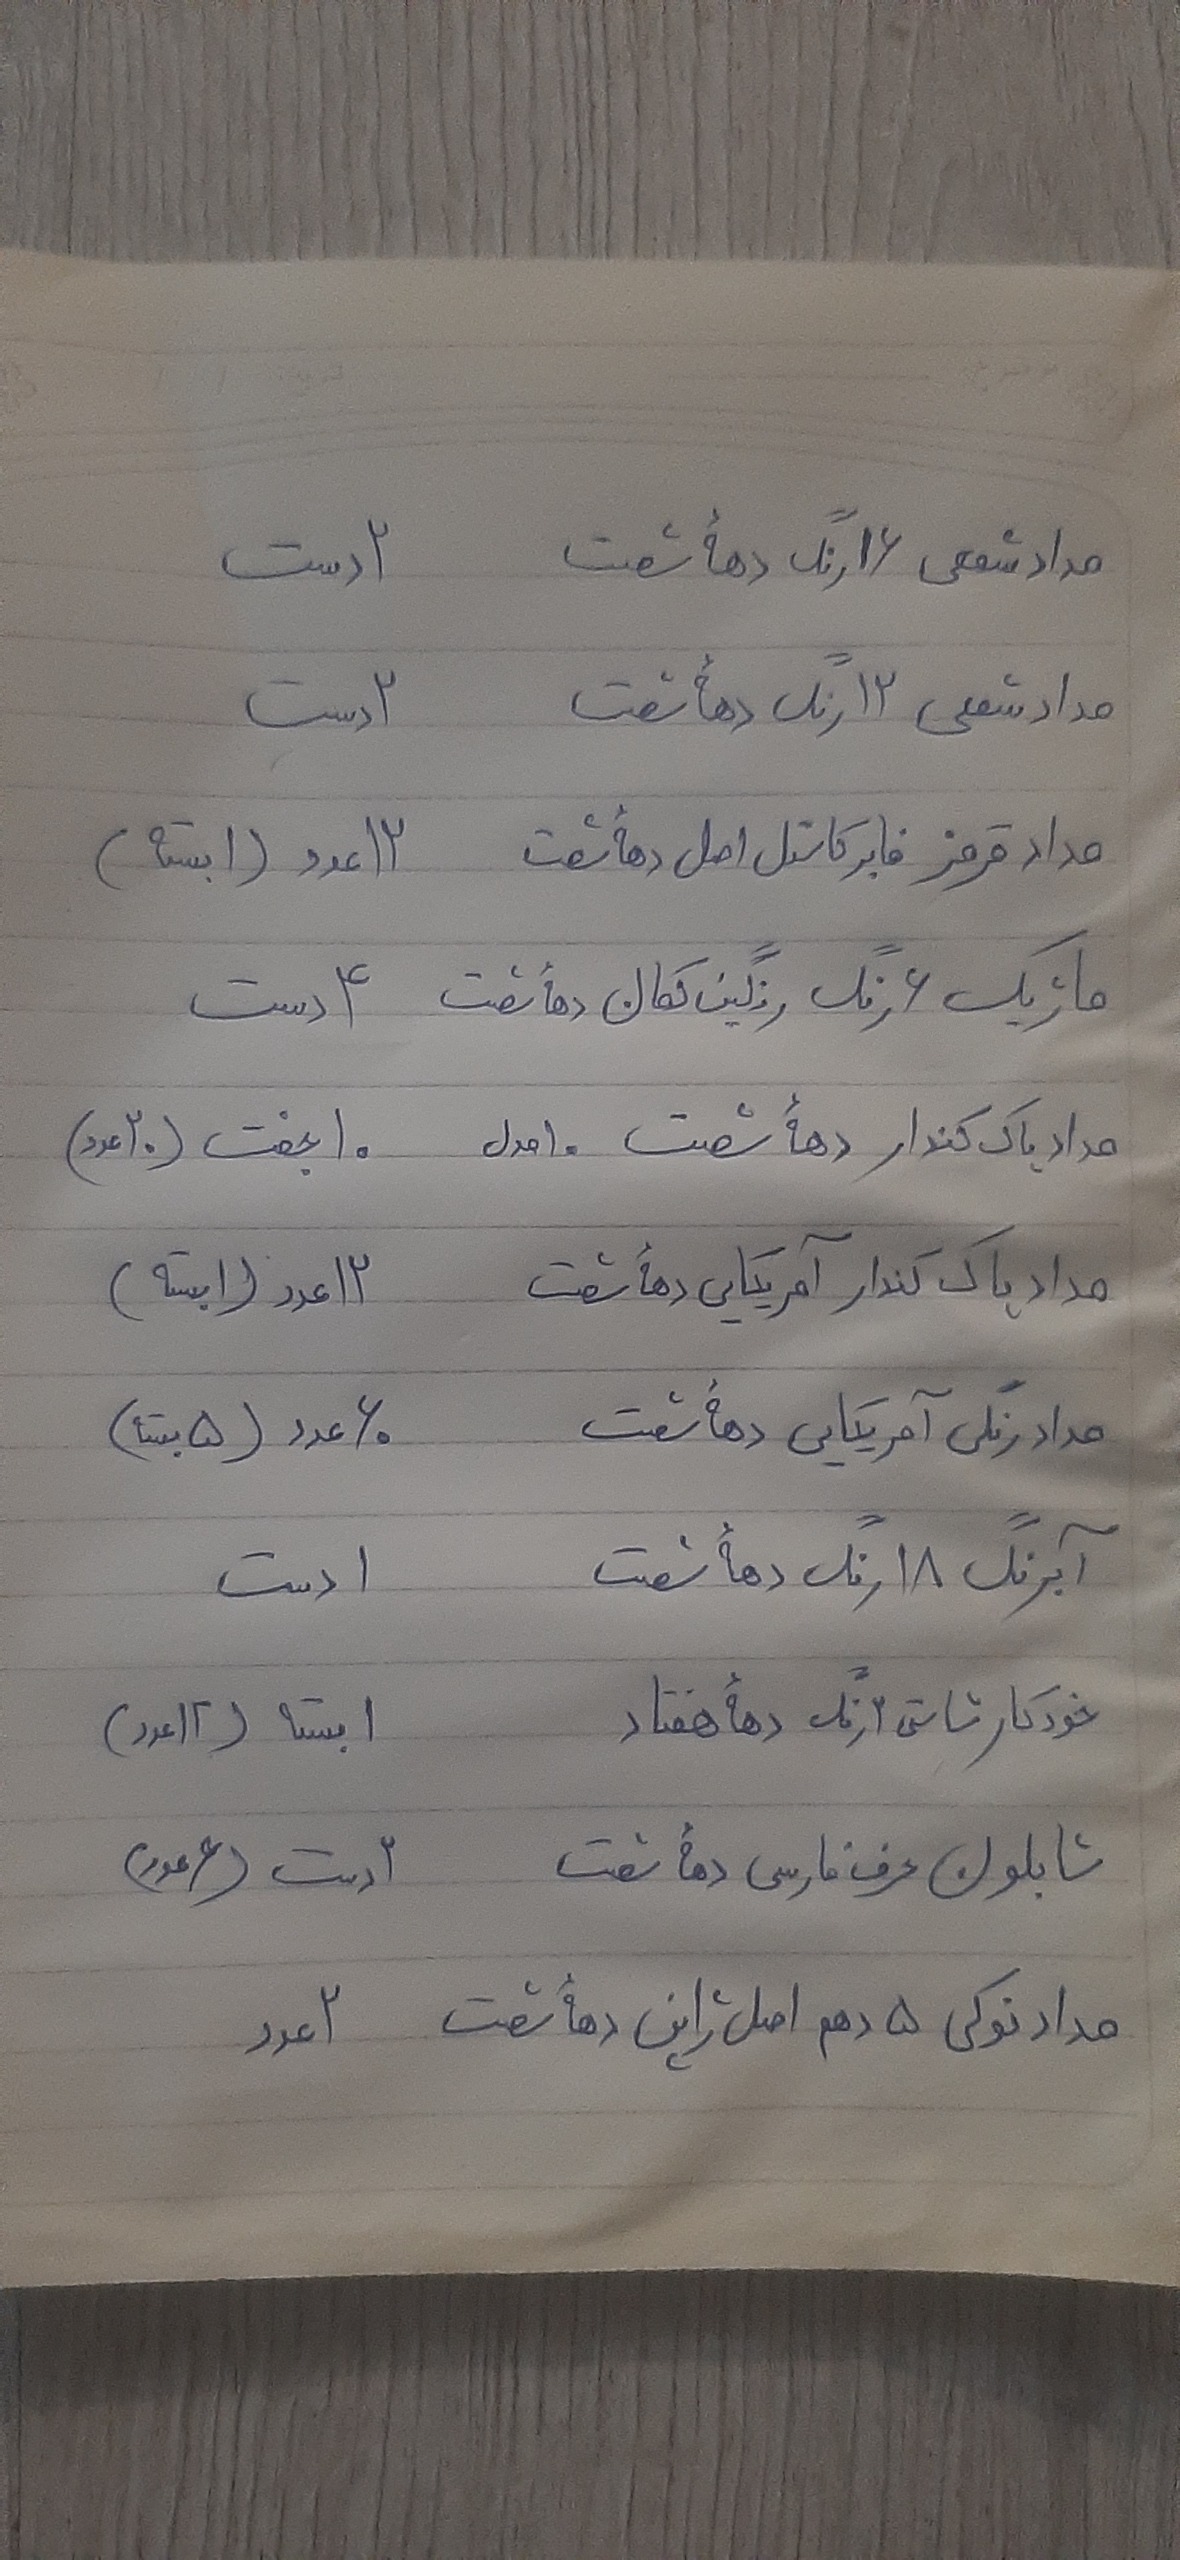 مداد شمعی ۱۶ رنگ دههٔ شصت ۲ دست
مداد شمعی ۱۲ رنگ دههٔ شصت ۲ دست
مداد قرمز فابر کاستل اصل دههٔ شصت ۱۲ عدد (۱ بسته)
ماژیک ۶ رنگ رنگین کمان دههٔ شصت ۴ دست
مداد پاک کندار دههٔ شصت ۱۰ مدل ۱۰ جفت (۲۰ عدد)
مداد پاک کندار آمریکایی دههٔ شصت ۱۲ عدد (۱ بسته)
مداد رنگی آمریکایی دههٔ شصت ۶۰ عدد (۵ بسته)
آبرنگ ۱۸ رنگ دههٔ شصت ۱ دست
خودکار شاستی ۲ رنگ دههٔ هفتاد ۱ بسته (۱۲ عدد)
شابلون حرف فارسی دههٔ شصت ۲ دست (۶ عدد)
مداد نوکی ۵ دهم اصل ژاپن دههٔ شصت ۲ عدد